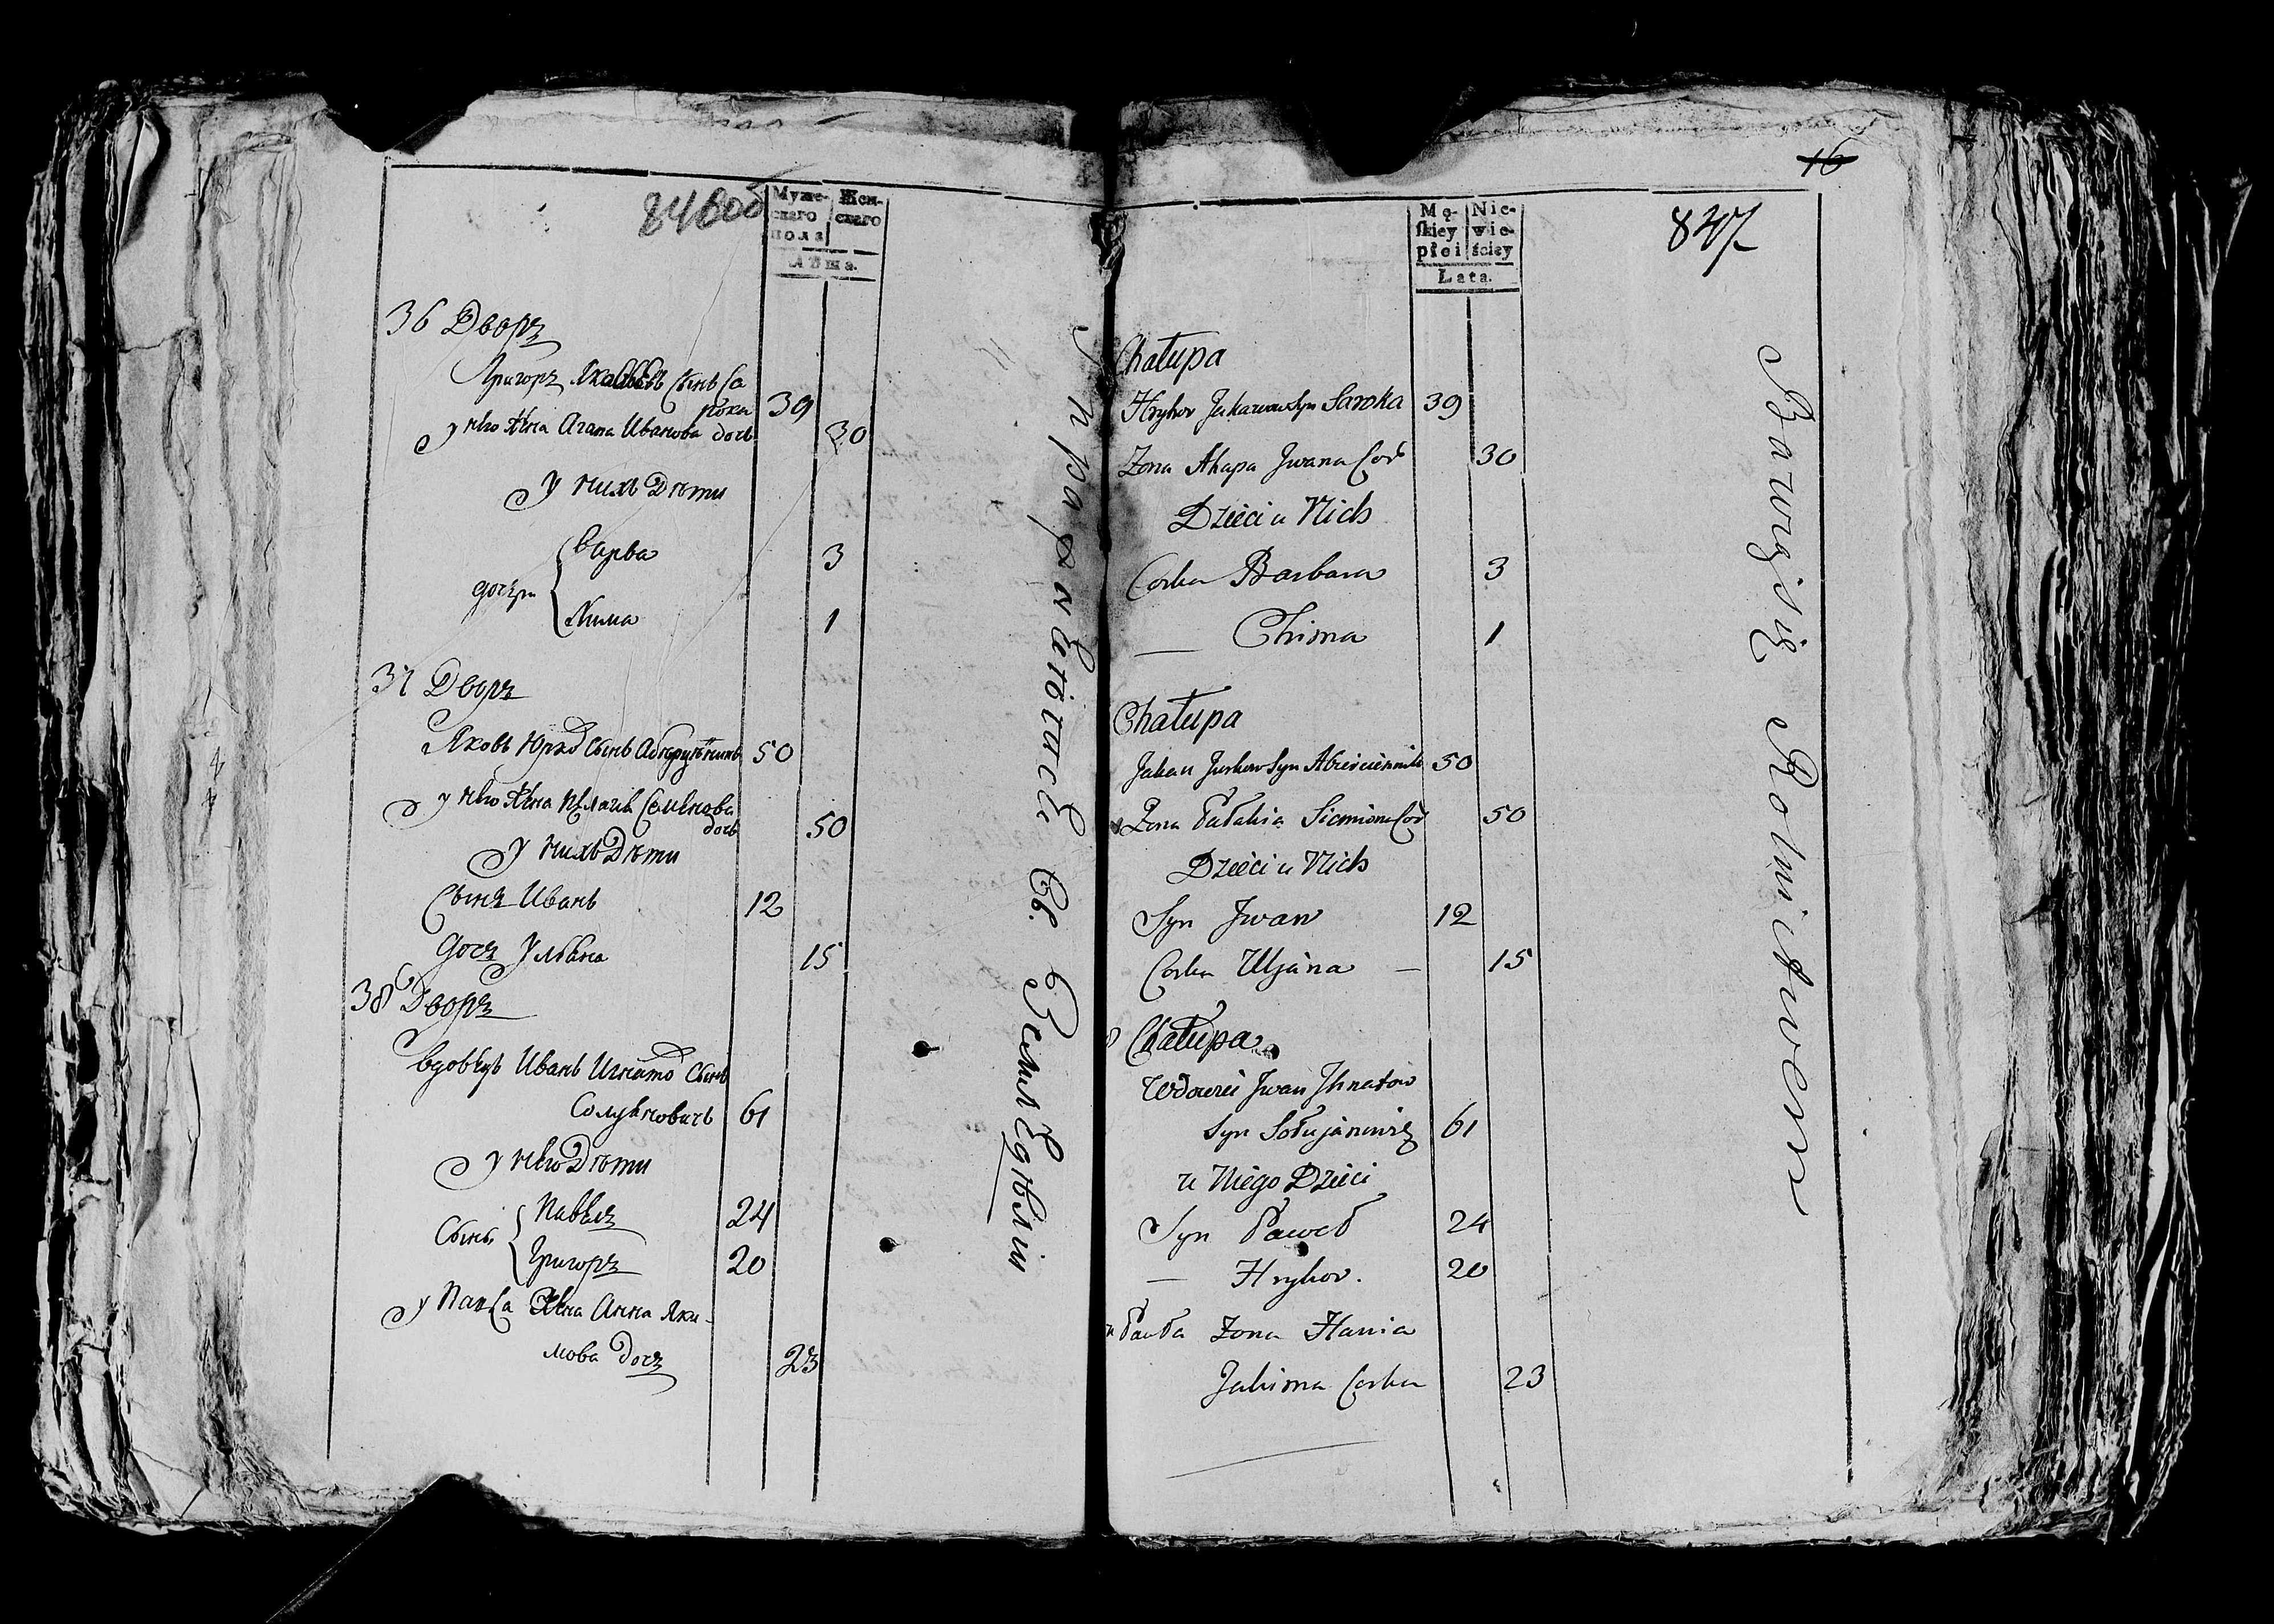 846об
Муже-
скаго
пола
Жен-
скаго
Лѣта.
36 Дворъ
Григоръ Яковлевъ сынъ Са
рока 39
у него жена Агапа Иванова дочь 30
у нихъ Дѣти
дочери
Варва 3
Хима 1
37 Дворъ
Яковъ Юрко Сынъ 50
у него жена Семенова
дочь 50
у нихъ Дѣти
Сынъ Иванъ 12
Дочь Ульяна 15
38 Дворъ
вдовецъ Иванъ Игнато Сынъ
61
у него Дѣти
Сынъ
Павелъ 24
Григоръ 20
у Павла жена Анна Яки-
мова дочь 23
упражняются въ Земледѣліи
16
847
Mę-
skiey
płci
Nie-
wie-
ściey
Lata.
Chałupa
Hryhor Jakawow Syn Saroka 39
Zona Ahapa Jwana Cor 30
Dzieci u Nich
Corka Barbara 3
— Chima 1
Chałupa
Jakau Jurkow Syn 50
Zona Pałahia Siemiona Cor 50
Dzieci u Nich
Syn Jwan 12
Corka Uljana — 15
8 Chałupa
Wdowiec Jwan Jhnatow
Syn Sołujanowicz 61
u Niego Dzieci
Syn Paweł 24
— Hryhor. 20
u Pawła Zona Hania
Jakima Corka 23
Bawią się Rolnictwem